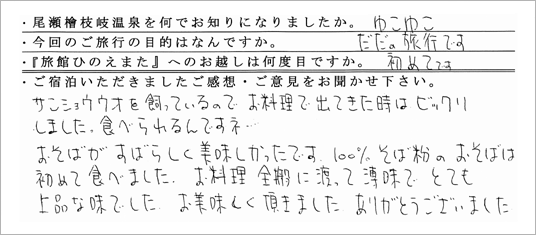 ・尾瀬檜枝岐温泉を何でお知りになりましたか。 ゆこゆこ
・今回のご旅行の目的はなんですか。 ただの旅行です
・『旅館ひのえまた』へのお越しは何度目ですか。 初めてです
・ご宿泊いただきましたご感想・ご意見をお聞かせ下さい。
サンショウウオを飼っているので お料理で出てきた時は ビックリ
しました。食べられるんですネ…
おそばがすばらしく美味しかったです。100% そば粉のおそばは
初めて食べました。お料理全般に渡って薄味で とても
上品な味でした。お美味しく頂きました ありがとうございました